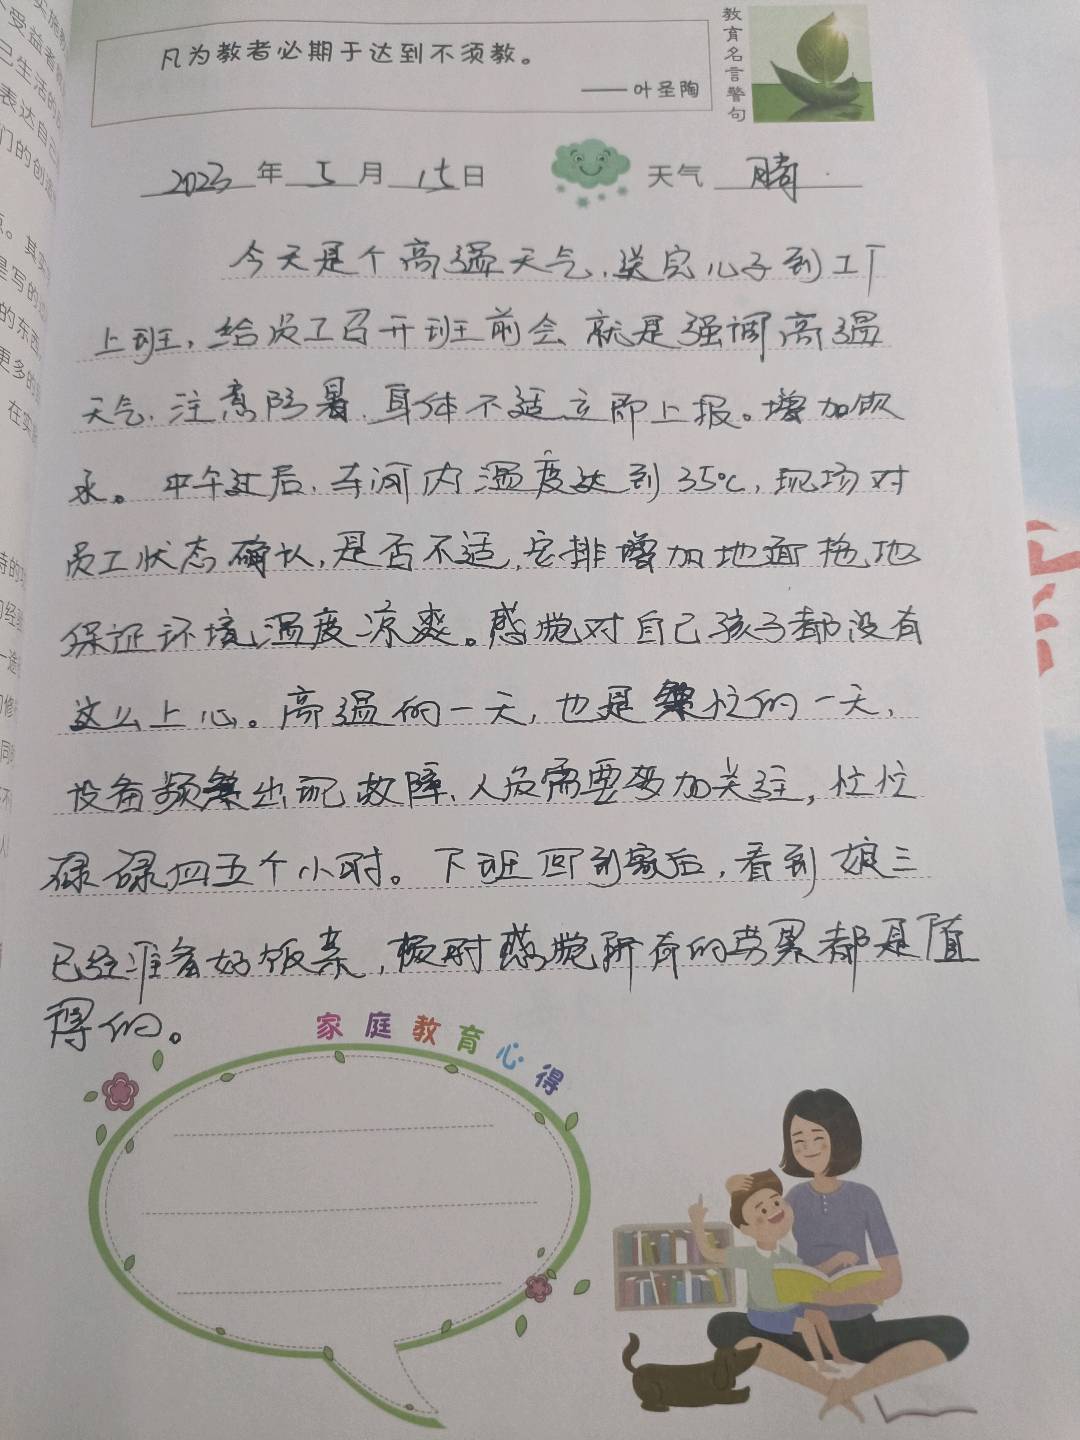 凡为教者必期于达到不须教。
——叶圣陶
教育名言警句
2023年5月15日 天气 晴
今天是个高温天气,送完儿子到工厂
上班,给员工召开班前会 就是强调高温
天气,注意防暑,身体不适立即上报。增加饮
水。中午过后,车间内温度达到35℃,现场对
员工状态确认,是否不适,安排增加地面拖地
保证环境温度凉爽。感觉对自己孩子都没有
这么上心。高温的一天,也是繁忙的一天,
设备频繁出现故障、人员需要多加关注,忙忙
碌碌四五个小时。下班回到家后,看到娘三
已经准备好饭菜,顿时感觉所有的劳累都是值
得的。
家庭教育心得